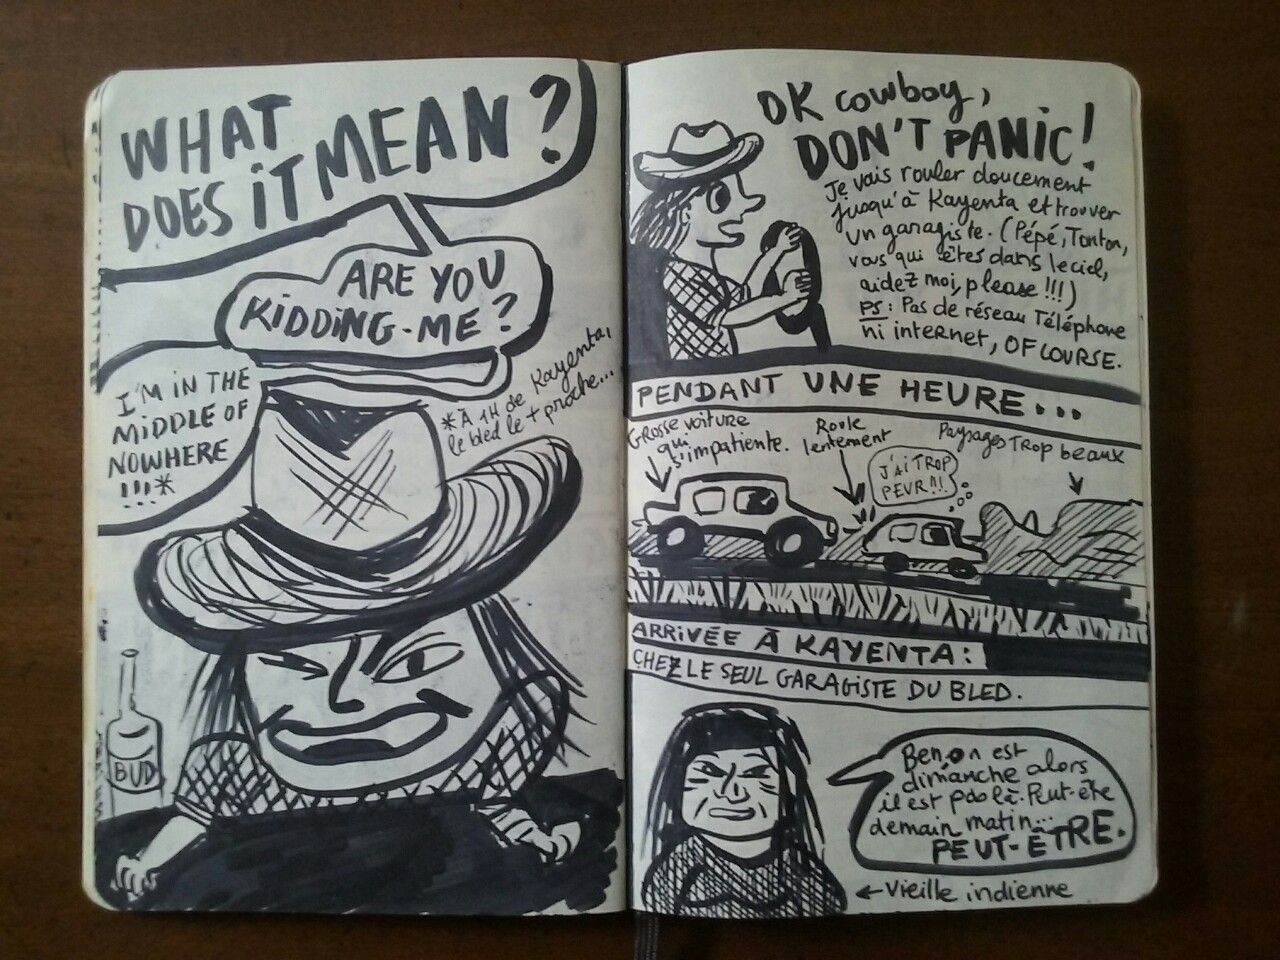 WHAT
DOES iT MEAN ?
ARE YOU
KiDDiNG-ME ?
I'M iN THE
MiDDLE OF
NOWHERE
!!!*
*À 1H de Kayenta,
le bled le + proche...
BUD
OK cowboy,
DON'T PANiC!
Je vais rouler doucement
jusqu'à Kayenta et trouver
un garagiste. (Pépé, Tonton,
vous qui êtes dans le ciel,
aidez moi, please !!!)
PS : Pas de réseau Téléphone
ni internet, OF COURSE.
PENDANT UNE HEURE...
Grosse voiture
qui
s'impatiente.
Roule
lentement
Paysages Trop beaux
J'AI TROP
PEUR!!!
ARRiVÉE À KAYENTA:
CHEZ LE SEUL GARAGISTE DU BLED.
Ben, on est
dimanche alors
il est pas là. Peut-être
demain matin...
PEUT-ÊTRE.
←Vieille indienne